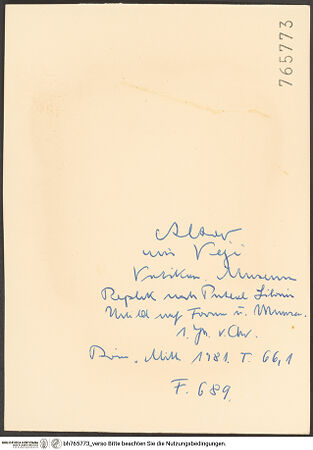 765773
Altar
aus Veji
Vatikan. Museum
Replik nach Puteal Libonis
auf Forum u.
1. Jh. v. Chr.
Röm. Mitt 1981. T. 66,1
F. 689
bh765773_verso Bitte beachten Sie die Nutzungsbedingungen.